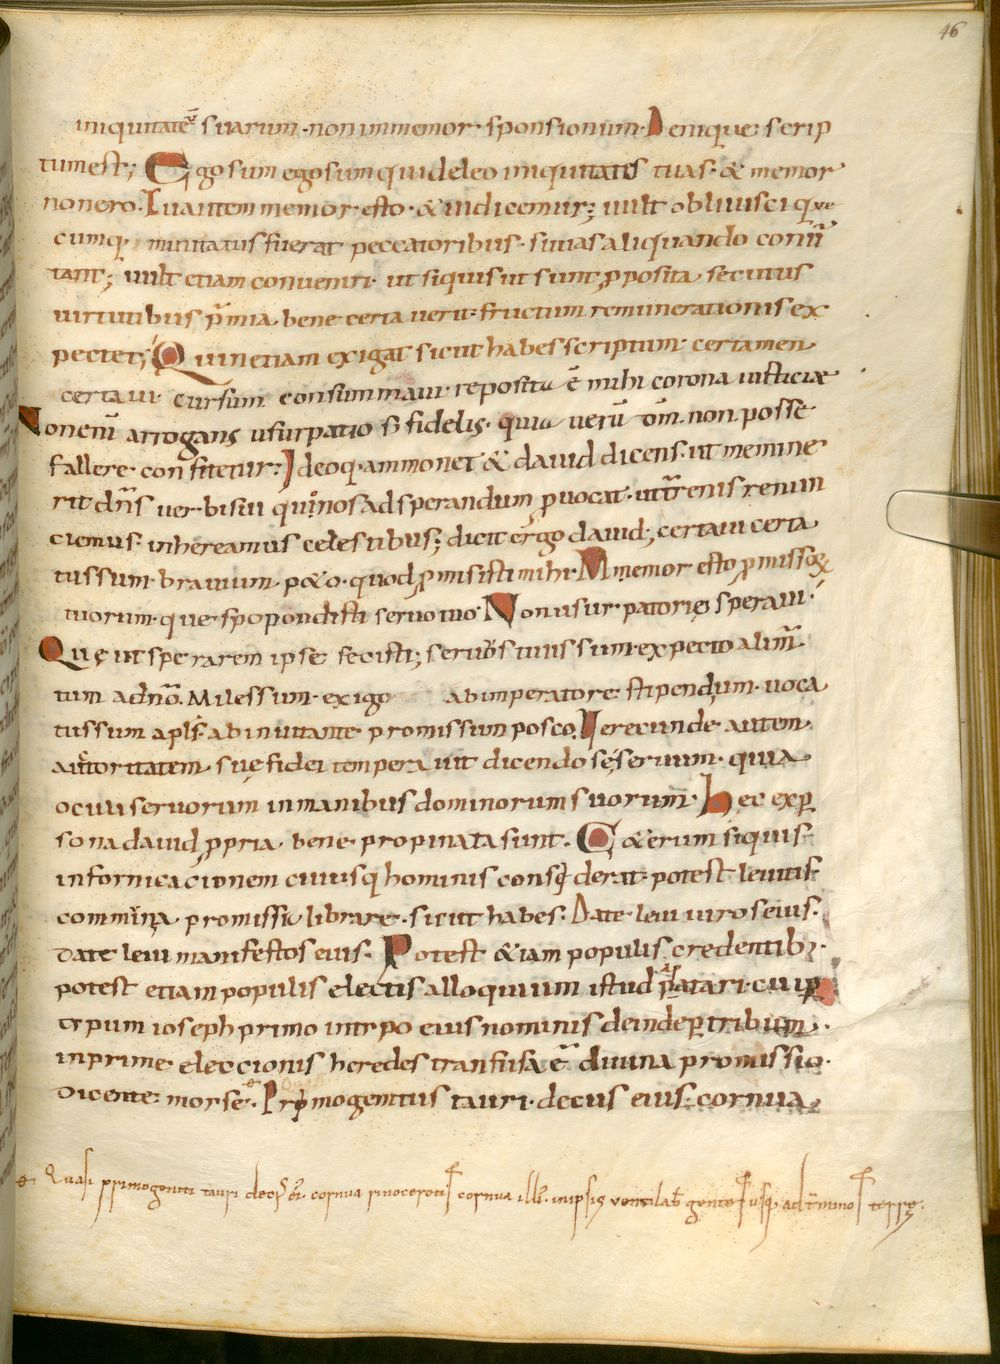 46
iniquitatē suarum · non inmemor sponsionum · Denique: scrip
tum est; Ego sum ego sum qui deleo iniquitates tuas · & memor
non ero · Tu autem memor esto · & iudicemur; uult obliuisci que
cumq · minitatus fuerat peccatoribus · si uias aliquando conm̄
tant; uult etiam conueniri · ut siquis ut sunt pposita secutus
uirtutibus p̄mia bene certa uerit · fructum remunerationis ex
pectet; Quin etiam exigat sicut habes scriptum · certamen
certaui cursum consummaui · reposita ē mihi corona iusticiae
Non enī arrogans usurpatio s; fidelis · quia uerū dm̄ non posse
fallere · confitetur: Ideoq · ammonet & dauid dicens · ut memine
rit dn̄s uerbi sui qui nos ad sperandum puocat · ut tr̄renis renun
ciemus · inhereamus celestibus; dicit ergo dauid; certaui certa
tus sum · brauium p&o · quod pmisisti mihi · Memor esto pmissoꝝ
tuorum · que spopondisti seruo tuo · Non usurpatorie speraui ·
Quę ut sperarem ipse fecisti; seruus tuus sum · expecto alim̄
tum a dnō · Miles sum · exigo ab imperatore: stipendium · uoca
tus sum apls · ab inuitante promissum posco · Uerecunde autem
auctoritatem suę fidei temperauit dicendo se seruum · quia
oculi seruorum in manibus dominorum suorum · Hec ex per
sona dauid ppria bene propinata sunt · C&erum siquis
in fornicacionem cuiusq hominis considerat · potest leuitis
communia promissa librare · sicut habes · Date leui uiros eius ·
Date leui manifestos eius · Potest &iam populis credentib; ·
potest etiam populis electis alloquium istud p̄atari · cui p
typum ioseph primo in typo eius nominis deinde p tribum ·
in prime eleccionis heredes tranfusa ē diuina promissio ·
Dicente: moyse · Primogenitus tauri · decus eius · cornua
Quasi primogeniti tauri decor ei · cornua rinocerotis cornua illi · in ipsis uentilab gentes usq ad t̄minos terrę ·